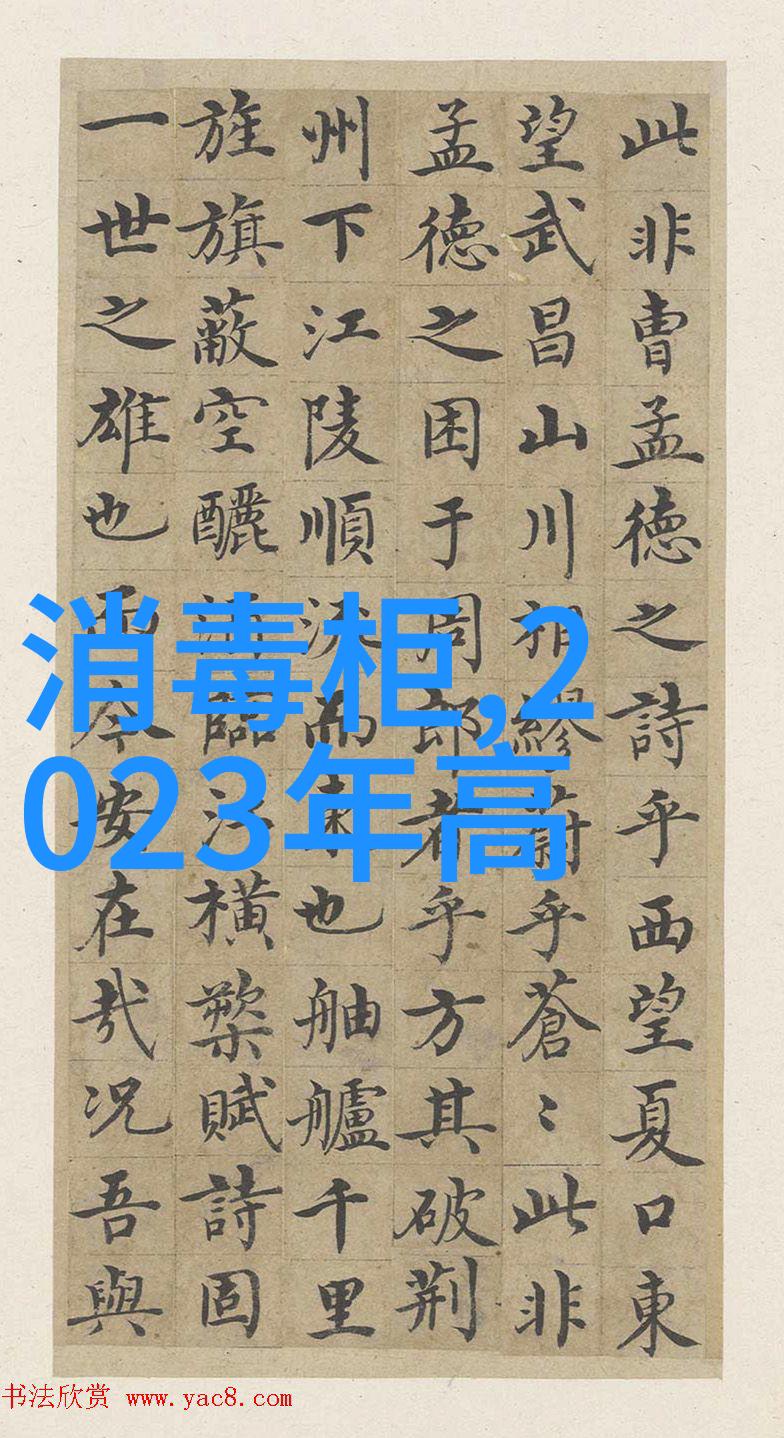 此非曹孟德之詩乎西望夏口東
望武昌山川相繆蔚乎蒼〻此非
孟德之困于周郎者乎方其破荆
州下江陵順流而東也舳艫千里
旌旗蔽空釃酒臨江橫槊賦詩固
一世之雄也而今安在哉况吾與
消毒柜,2
023年高
书法欣赏 www.yac8.com